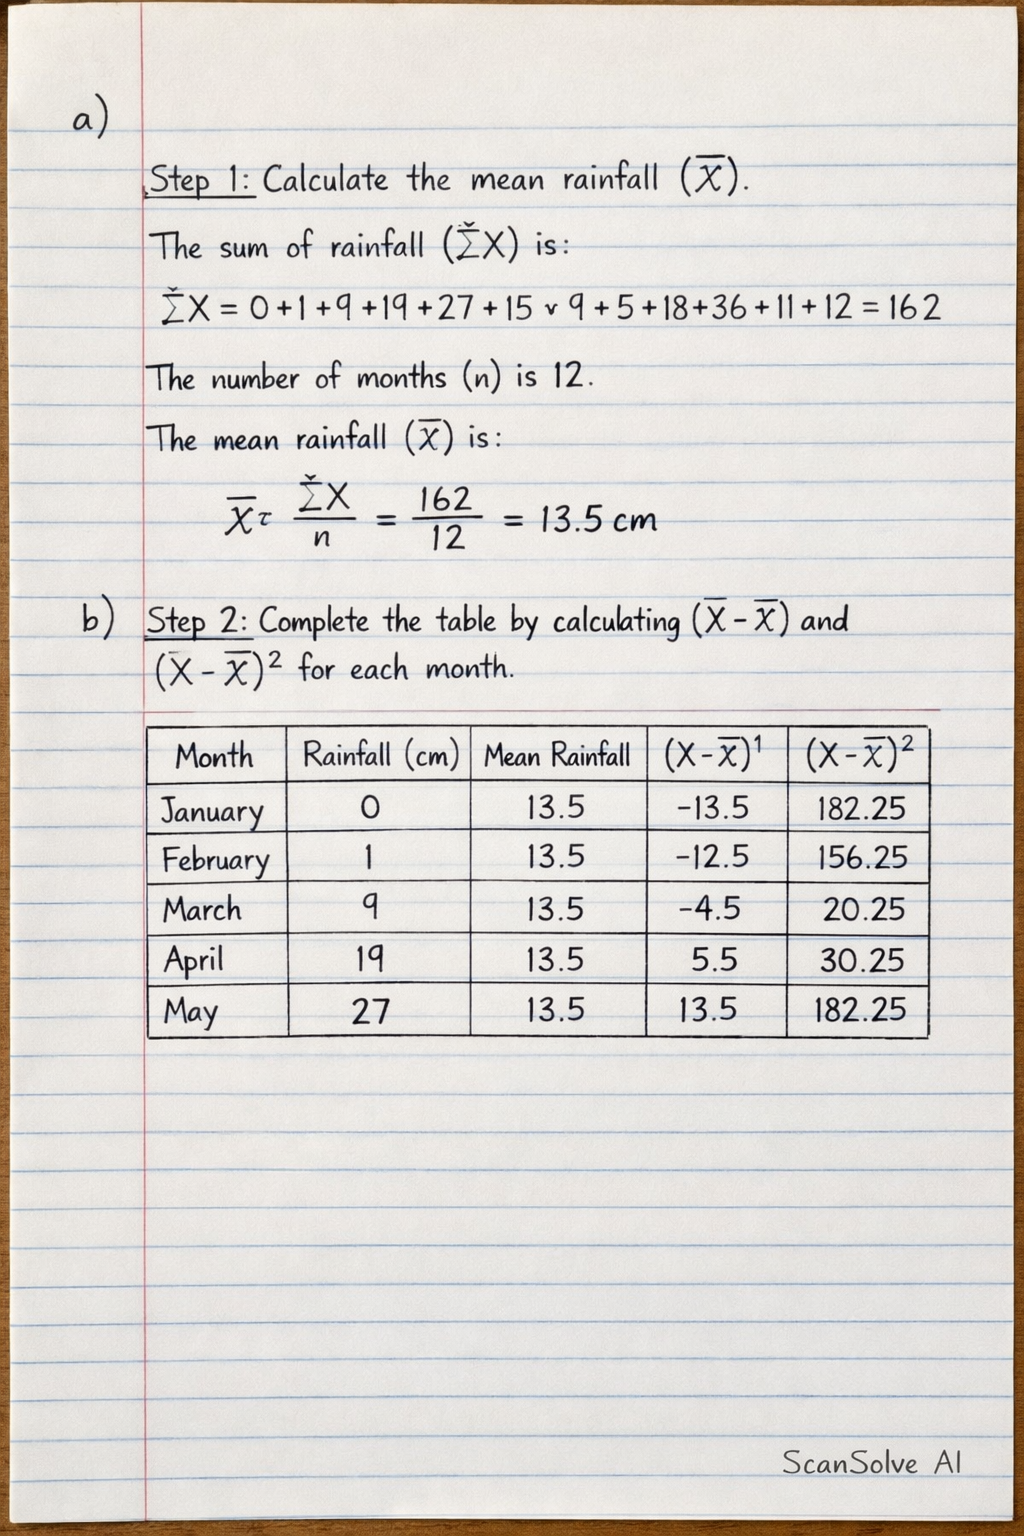 a)
Step 1: Calculate the mean rainfall (x̅).
The sum of rainfall (Σ̌X) is:
Σ̌X = 0+1+9+19+27+15 v 9+5+18+36+11+12 = 162
The number of months (n) is 12.
The mean rainfall (x̅) is:
x̅ τ Σ̌X / n = 162 / 12 = 13.5 cm
b) Step 2: Complete the table by calculating (X̅ - x̅) and
(X - x̅)² for each month.
Month Rainfall (cm) Mean Rainfall (X-x̅)¹ (X-x̅)²
January 0 13.5 -13.5 182.25
February 1 13.5 -12.5 156.25
March 9 13.5 -4.5 20.25
April 19 13.5 5.5 30.25
May 27 13.5 13.5 182.25
ScanSolve AI